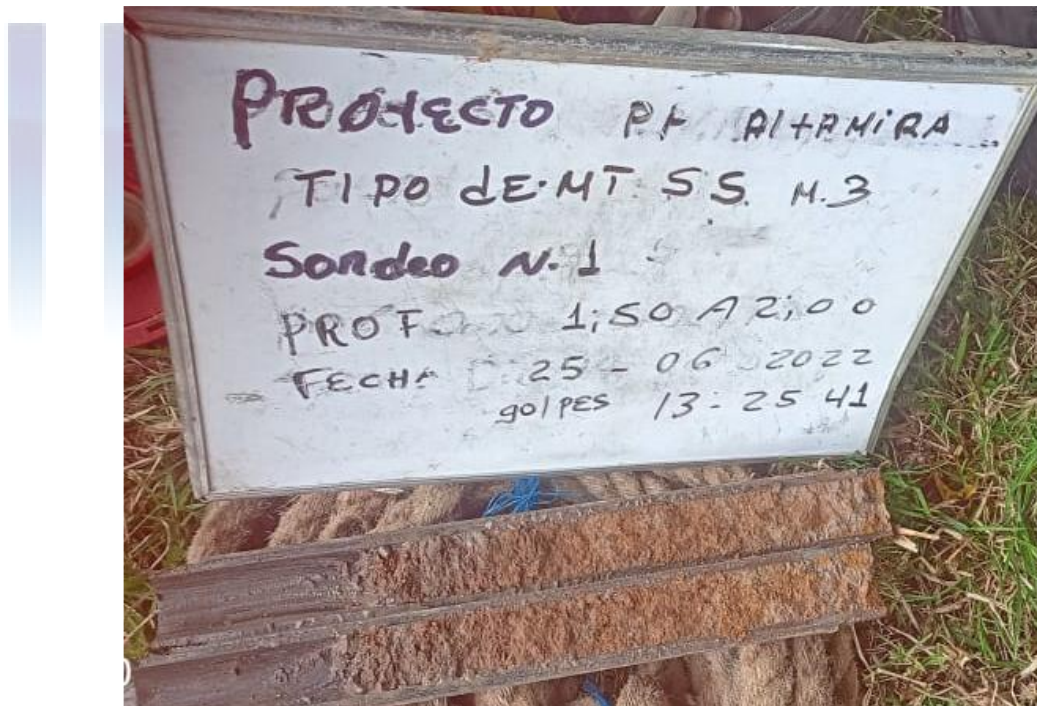 PROYECTO PF AltAMiRA
TIPO dE MT S S. M. 3
Sondeo N. 1
PROF 1;50 A 2;00
FECHA 25 - 06 2022
golpES 13 - 25 41